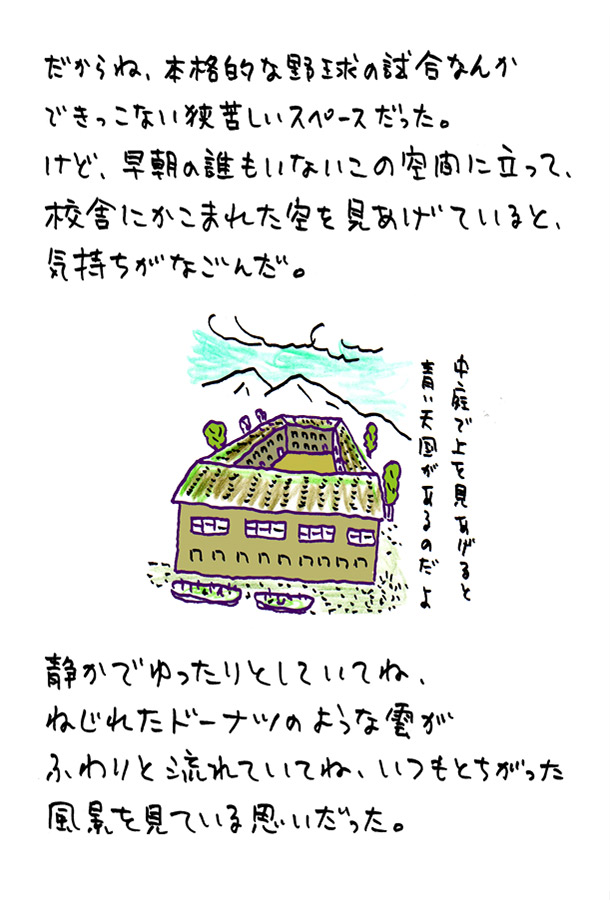 だからね、本格的な野球の試合なんか
できっこない狭苦しいスペースだった。
けど、早朝の誰もいないこの空間に立って、
校舎にかこまれた空を見あげていると、
気持ちがなごんだ。
中庭で上を見あげると
青い天国があるのだよ
静かでゆったりとしていてね、
ねじれたドーナツのような雲が
ふわりと流れていてね、いつもとちがった
風景を見ている思いだった。